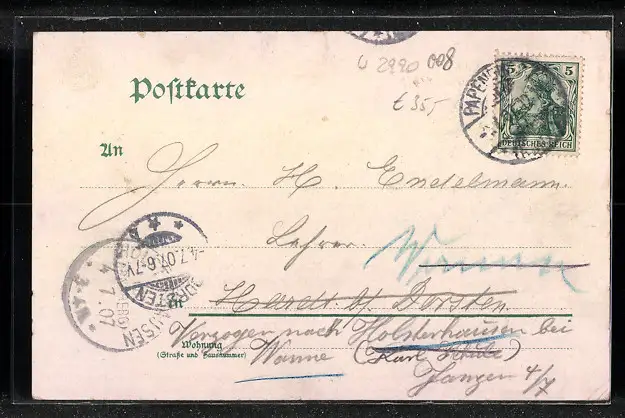 U 2990 008
€ 35,-
Postkarte
5 5
DEUTSCHES REICH
PAPENBURG
An
Herrn H. Endelmann
Lehrer Wanne
4.7.07.6-7V.
DORSTEN
4.7.07
in Hardt b/ Dorsten.
Verzogen nach Holsterhausen bei
Wohnung
(Straße und Hausnummer)
Wanne (Karl
4/7